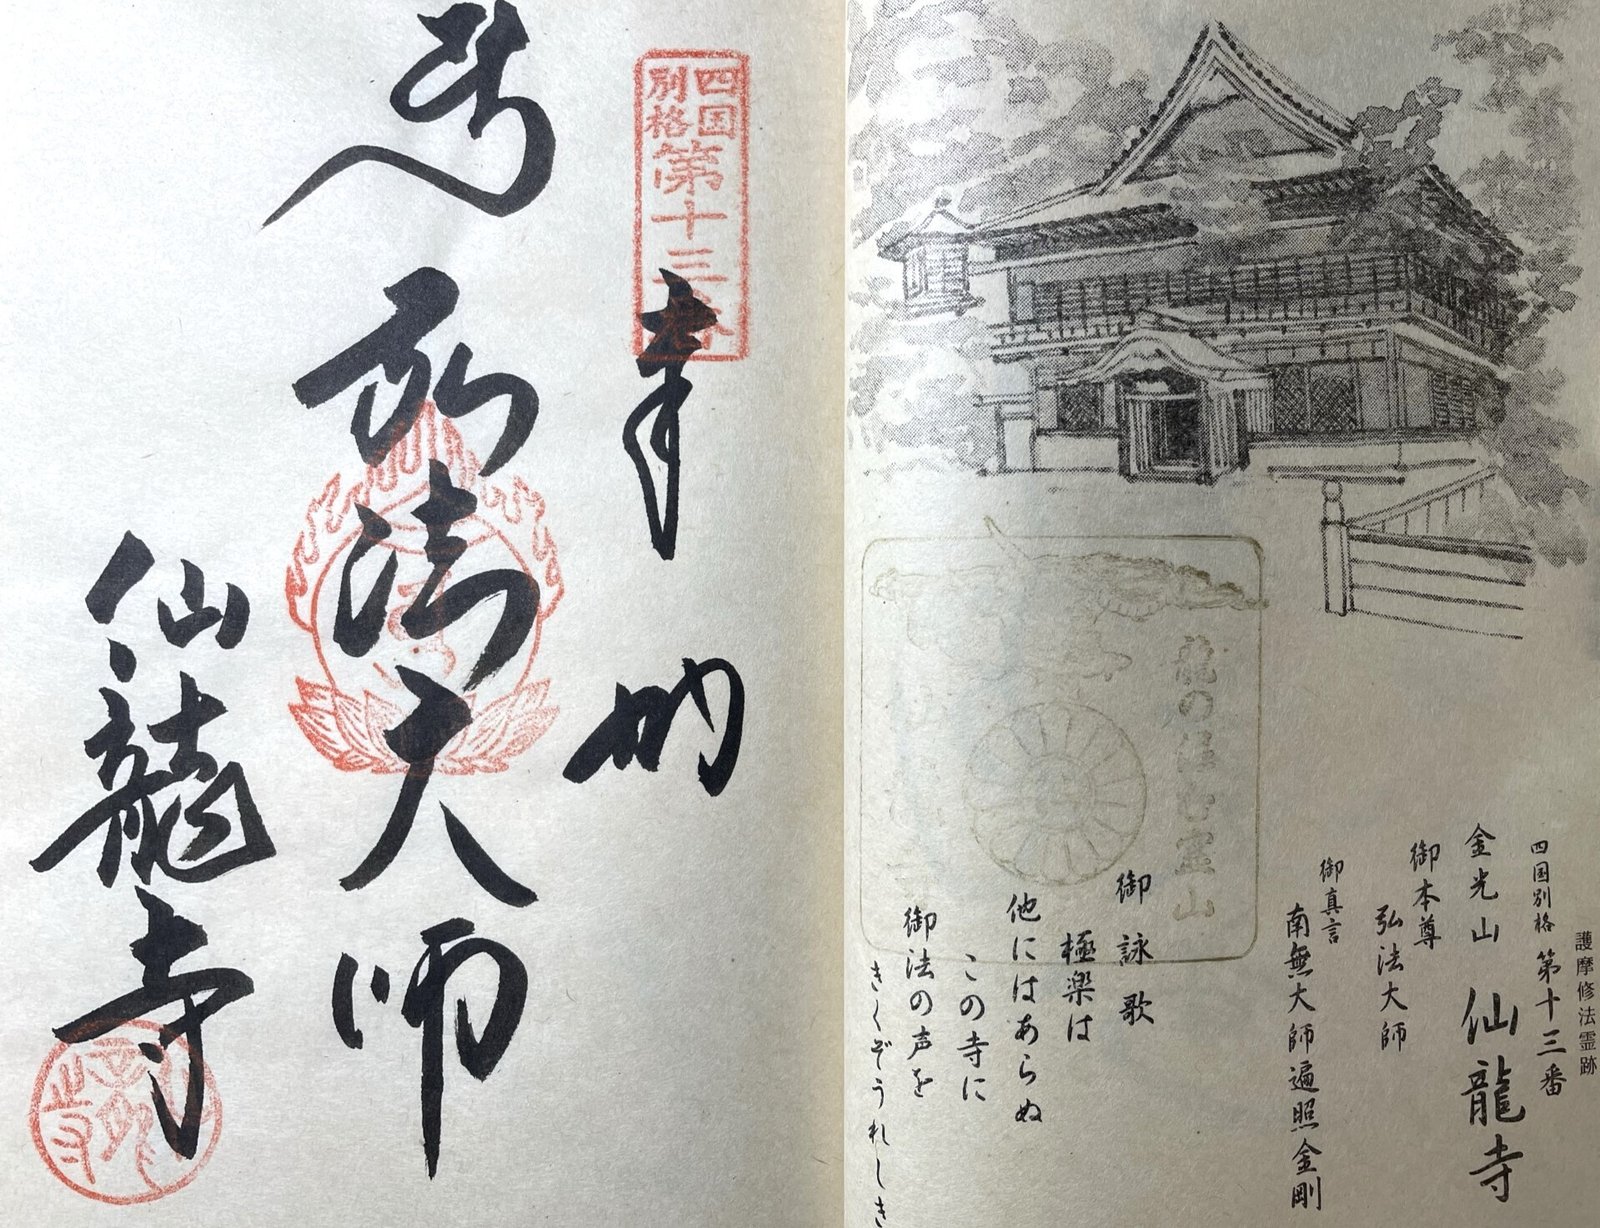 護摩修法霊跡
四国別格 第十三番
金光山 仙龍寺
御本尊
弘法大師
御真言
南無大師遍照金剛
御詠歌
極楽は
他にはあらぬ
この寺に
御法の声を
きくぞうれしき
龍の法む霊山
四国
別格
第十三番
奉納
弘法大師
仙龍寺